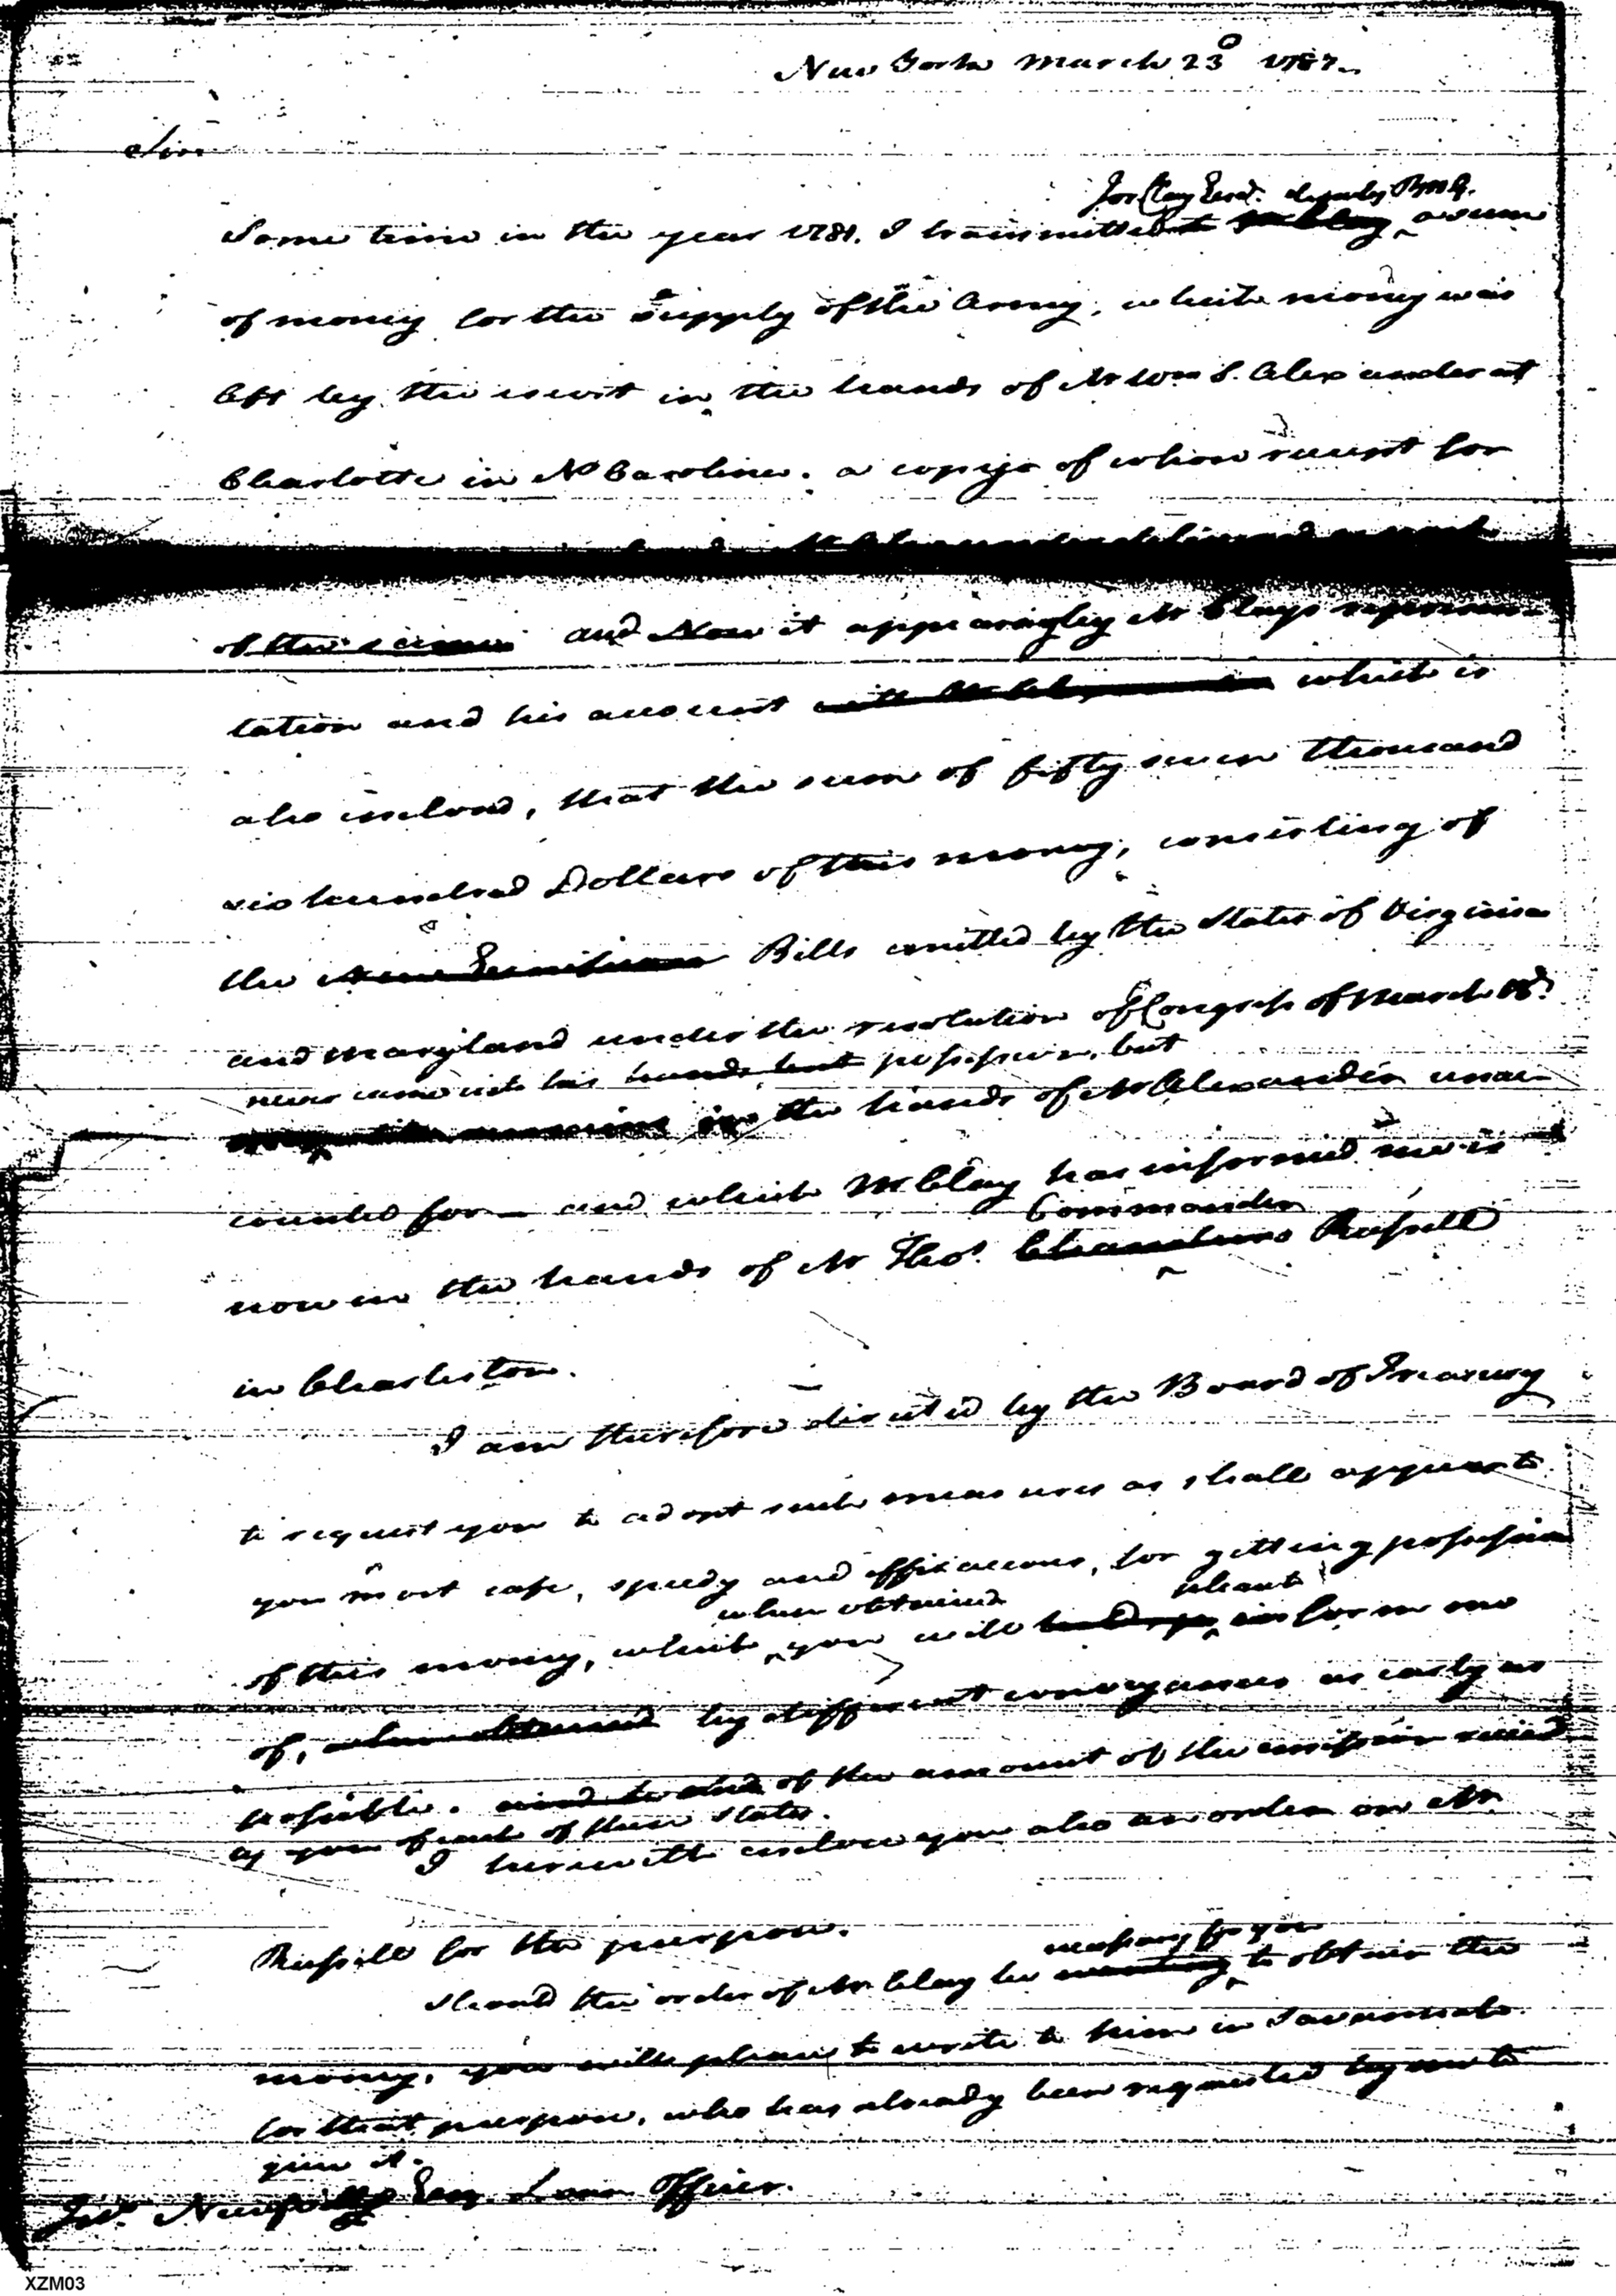 New York March 23d 1787.
Sir
Jos Clay Esqr. deputy P M G.
Some time in the year 1781. I transmitted to Mr Clay a sum
of money for the supply of the Army, which money was
left by the escort in the hands of Mr Wm S. Alexander at
Charlotte in No Carolina. a copy of whose receipt for
of the same and Now it appearing by Mr Clays represen-
tation and his account with Mr Alexander which is
also inclosed, that the sum of fifty seven thousand
six hundred Dollars of this money, consisting of
the New Emissions Bills emitted by the States of Virginia
and Maryland under the resolution of Congress of March 18th
never came into his hands but possession, but
remains in the hands of Mr Alexander unac-
counted for — and which Mr Clay has informed me is
Commander
now in the hands of Mr Thos. Chambers Russell
in Charleston.
I am therefore directed by the Board of Treasury
to request you to adopt such measures as shall appear to
you most safe, speedy and efficacious, for getting possession
when obtained please
of this money, which you will inform me
of, when obtained by different conveyances as early as
possible. of the amount of the emission recied
by you of each of these States.
I herewith inclose you also an order on Mr
Russell for the purpose.
necessary for you
Should the order of Mr Clay be wanting to obtain the
money, you will please to write to him in Savannah
for that purpose, who has already been requested by me to
give it.
Jno. Esq. Loan Officer.
XZM03